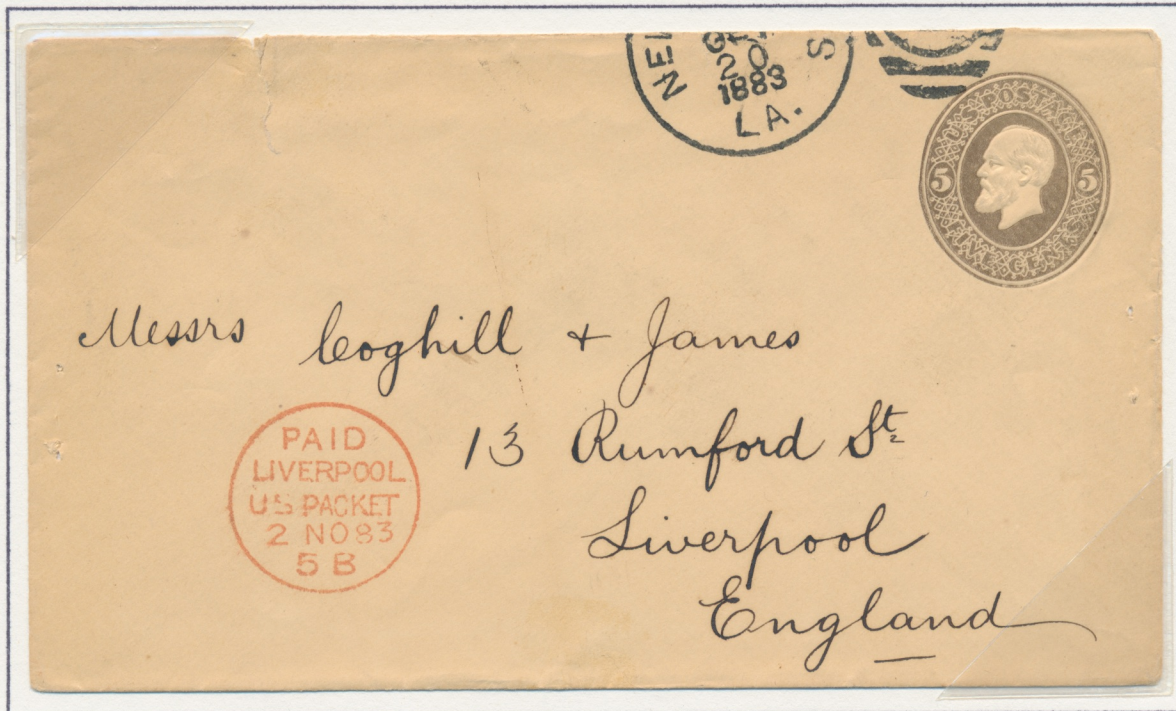 20
1883
LA.
U.S. POSTAGE
5 5
FIVE CENTS
Messrs Coghill + James
13 Rumford St
Liverpool
England
PAID
LIVERPOOL
US PACKET
2 NO 83
5 B